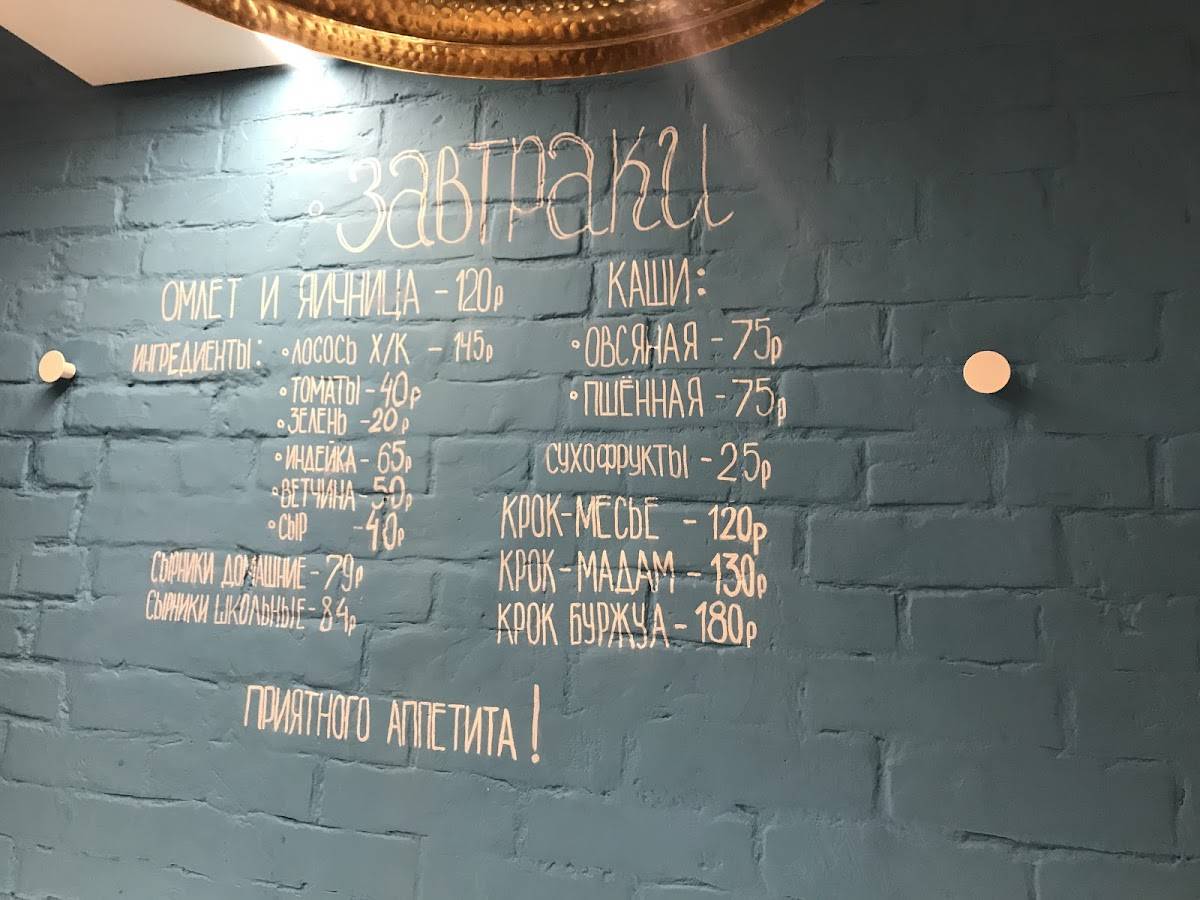 завтраки
ОМЛЕТ И ЯИЧНИЦА - 120р
ИНГРЕДИЕНТЫ: • ЛОСОСЬ Х/К - 145р
• ТОМАТЫ - 40р
• ЗЕЛЕНЬ - 20р
• ИНДЕЙКА - 65р
• ВЕТЧИНА - 50р
• СЫР - 40р
СЫРНИКИ ДОМАШНИЕ - 79р
СЫРНИКИ ШКОЛЬНЫЕ - 84р
КАШИ:
• ОВСЯНАЯ - 75р
• ПШЁННАЯ - 75р
СУХОФРУКТЫ - 25р
КРОК-МЕСЬЕ - 120р
КРОК-МАДАМ - 130р
КРОК БУРЖУА - 180р
ПРИЯТНОГО АППЕТИТА!